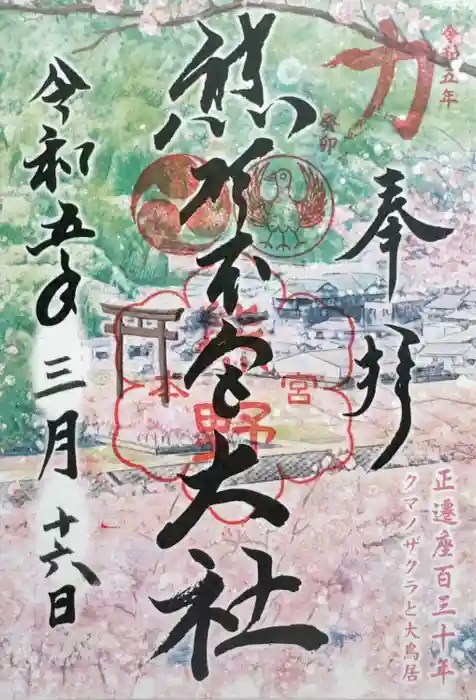 力
令和五年
癸卯
奉拝
熊野本宮大社
熊野
本宮
令和五年三月十六日
正遷座百三十年
クマノザクラと大鳥居